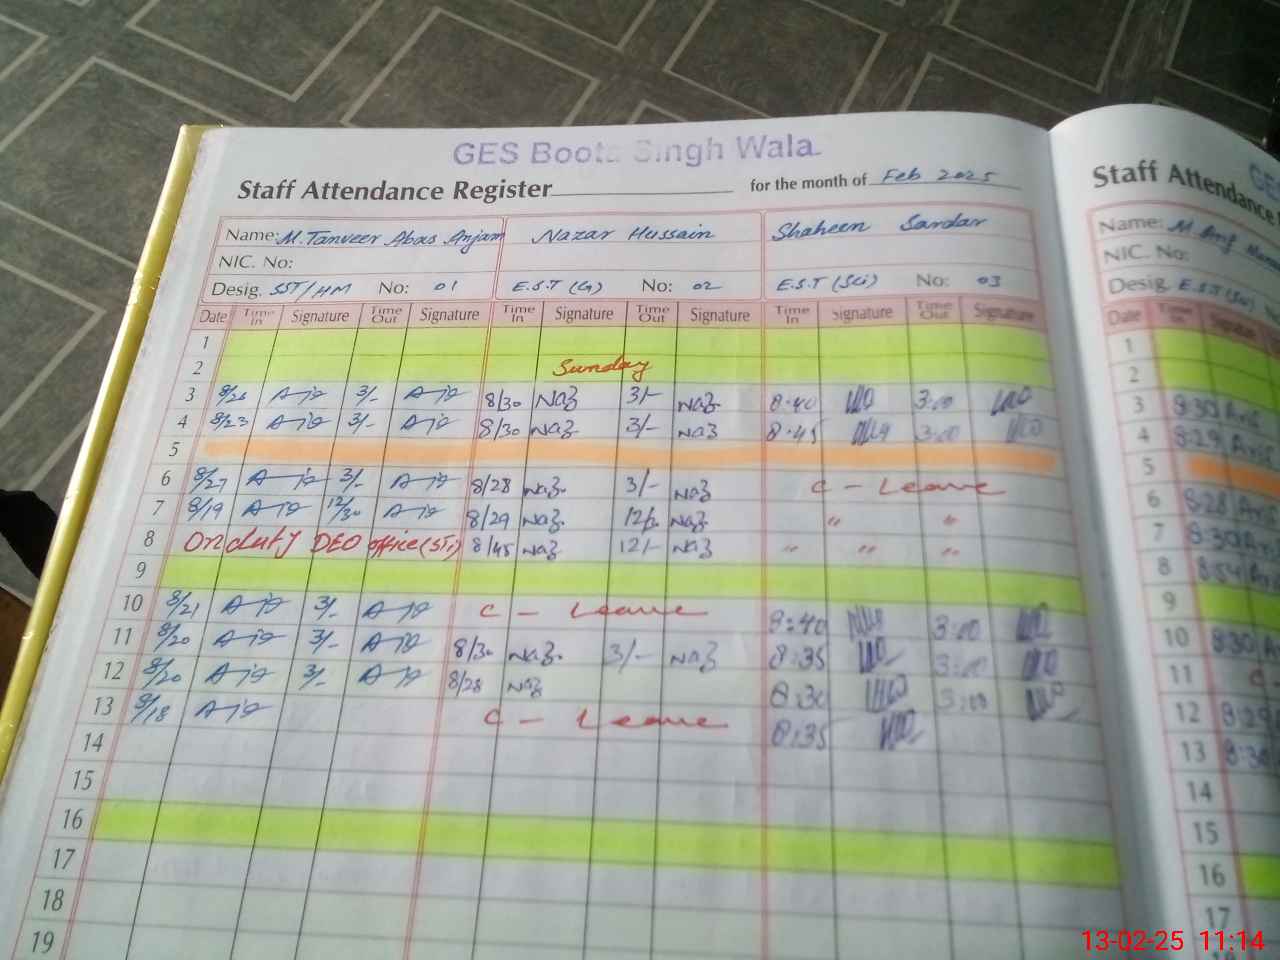 GES Boota Singh Wala.
Staff Attendance Register for the month of Feb 2025
Name: M. Tanveer Abas Anjam Nazar Hussain Shaheen Sardar
NIC. No:
Desig. SST/HM No: 01 E.S.T (G) No: 02 E.S.T (Sci) No: 03
Date Time In Signature Time Out Signature Time In Signature Time Out Signature Time In Signature Time Out Signature
1
2 Sunday
3 8/26 3/- 8/30 Naz 3/- Naz 8:40 3:00
4 8/23 3/- 8/30 Naz 3/- Naz 8:45 3:00
5
6 8/27 3/- 8/28 Naz 3/- Naz C - Leave
7 8/19 12/30 8/29 Naz Naz " "
8 On duty DEO office (STr) 8/45 Naz 12/- Naz " " "
9
10 8/21 3/- C - Leave 8:40 3:00
11 8/20 3/- 8/30 Naz 3/- Naz 8:35 3:00
12 8/20 3/- 8/28 Naz 8:30 3:00
13 8/18 C - Leave 8:35
14
15
16
17
18
19
Staff Attendance
Name: M Arif
Desig. E.S.T
Date Time In
1
2
3 8:30
4 8:29
5
6 8:28
7 8:30
8 8:54
9
10 8:30
11
12 8:29
13
14
15
16
17
13-02-25 11:14